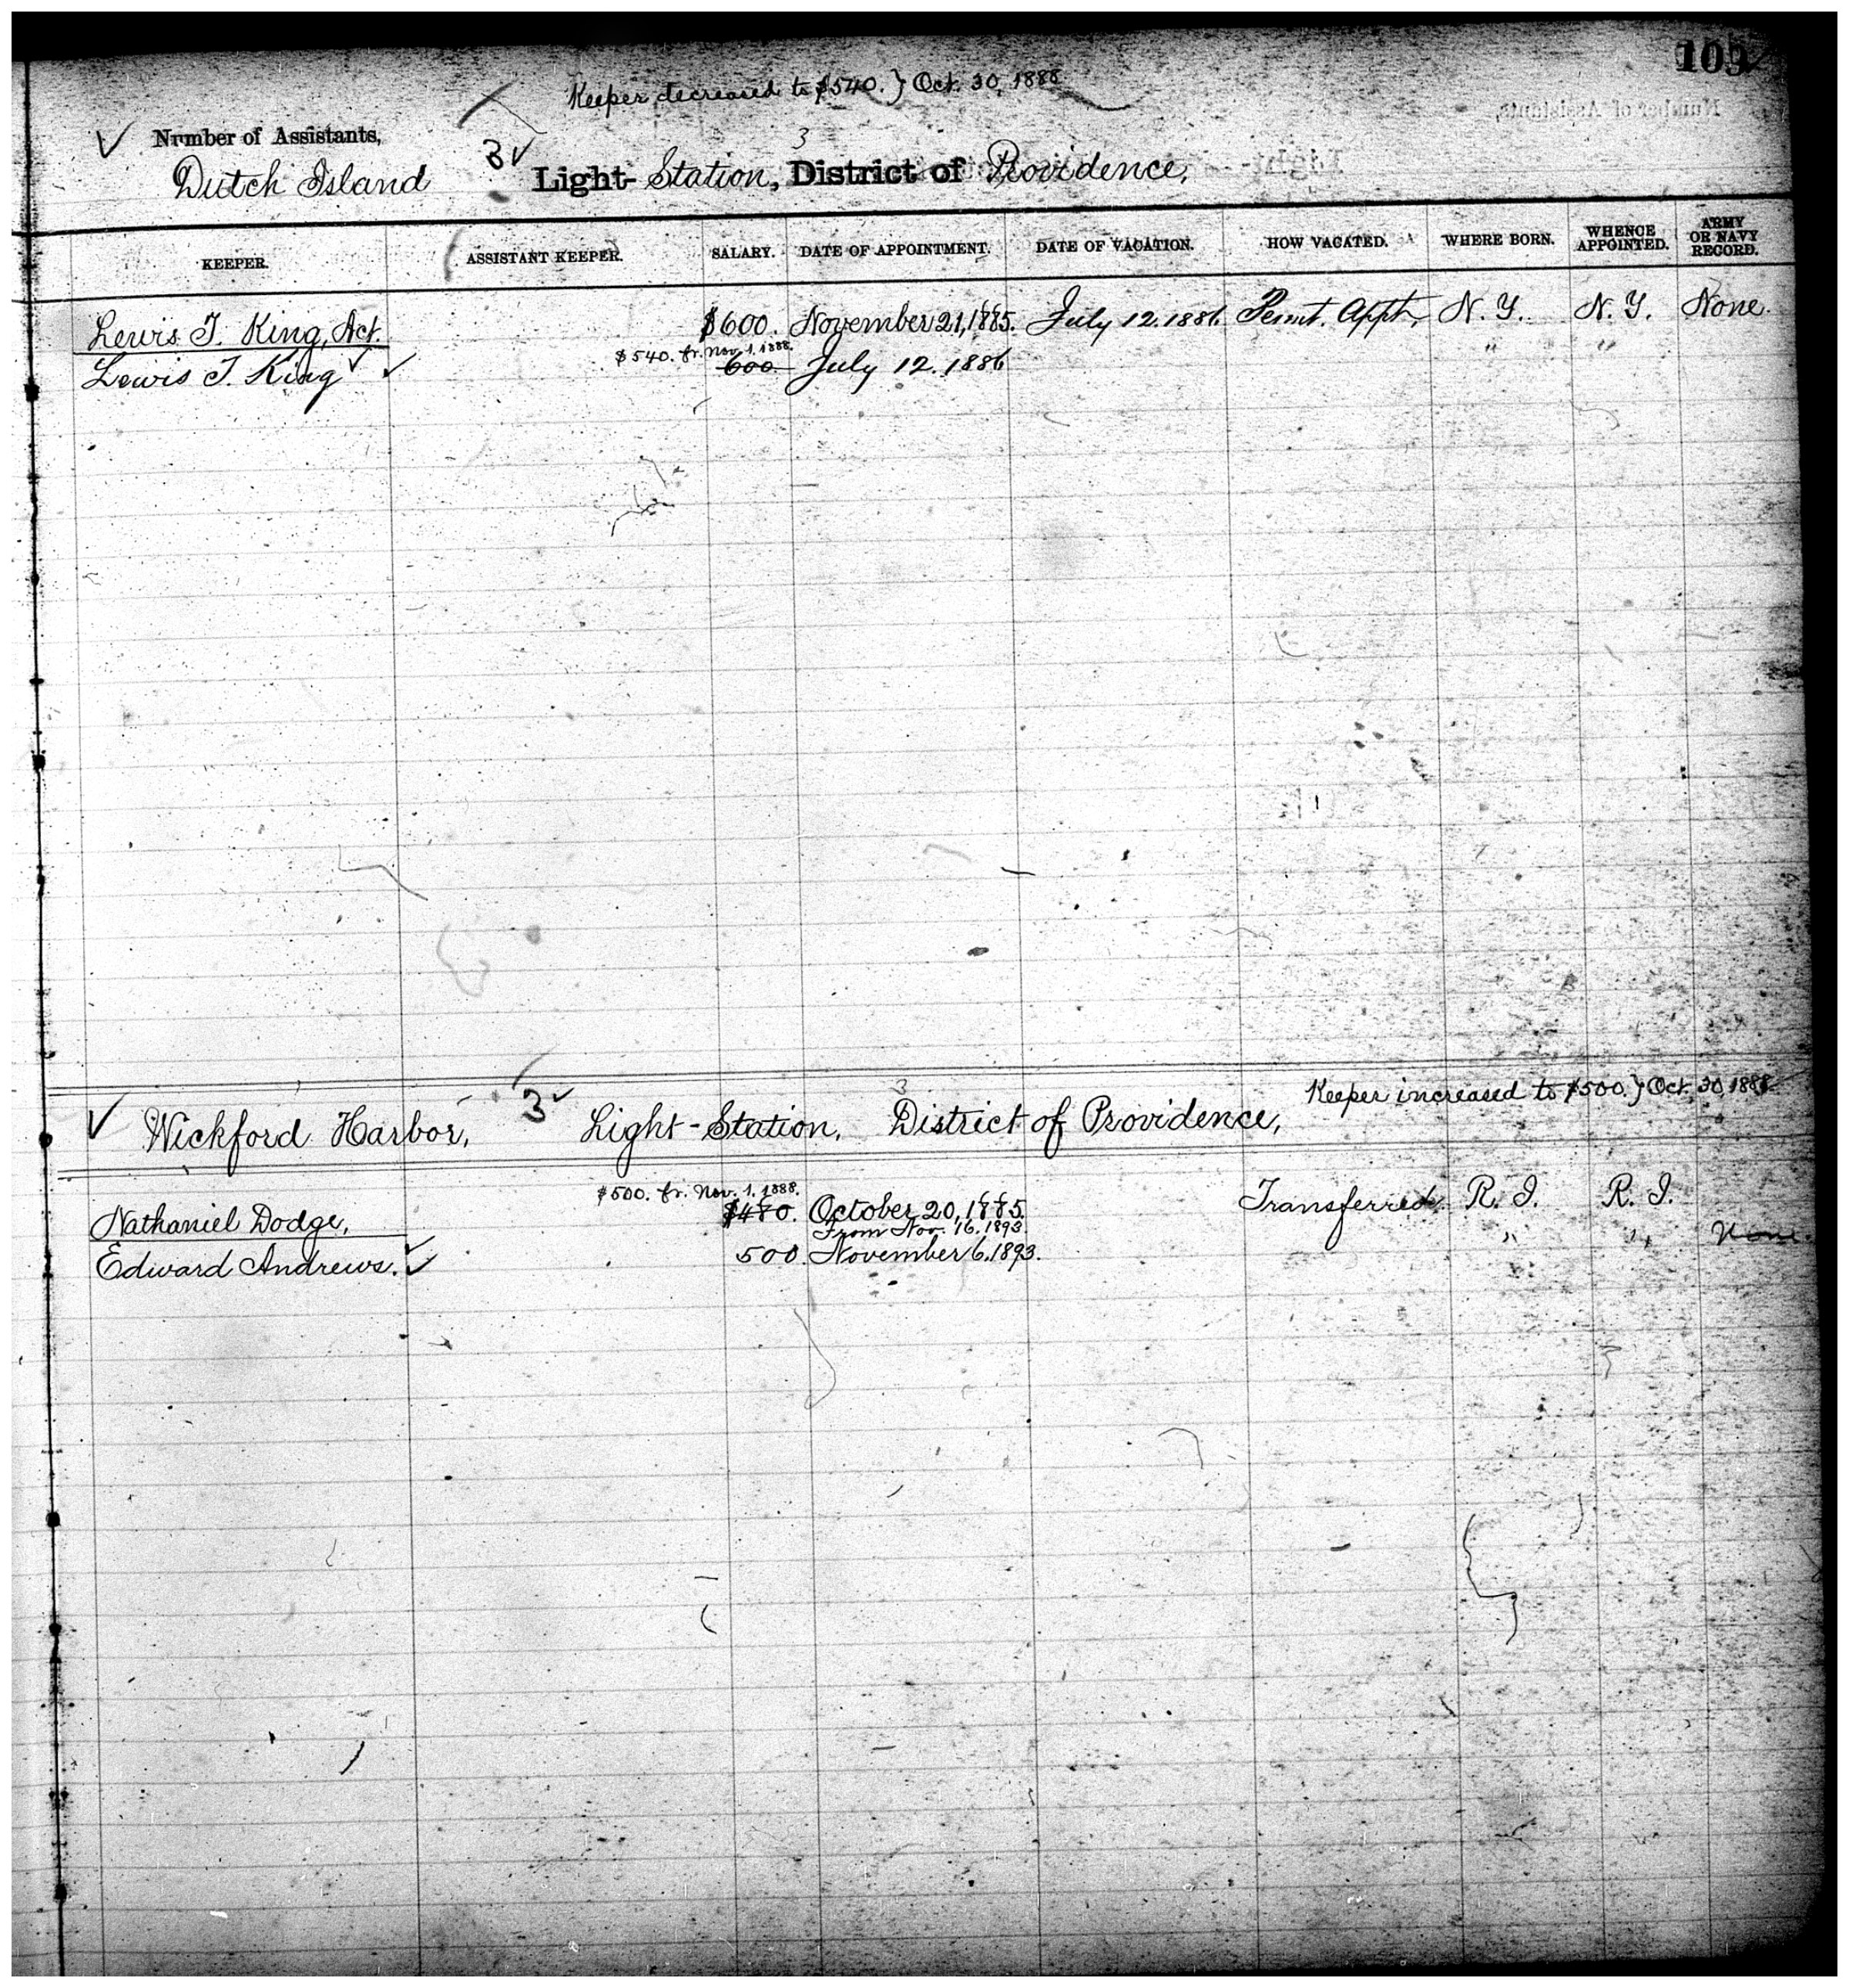 109
Keeper decreased to $540. } Oct. 30, 1888
Number of Assistants,
3
Dutch Island 3 Light-Station, District of Providence,
KEEPER. ASSISTANT KEEPER. SALARY. DATE OF APPOINTMENT. DATE OF VACATION. HOW VACATED. WHERE BORN. WHENCE APPOINTED. ARMY OR NAVY RECORD.
Lewis T. King, Act. $600. November 21, 1885. July 12. 1886. Permt. Appt. N. Y. N. Y. None.
$540. fr. Nov. 1. 1888.
Lewis T. King 600. July 12. 1886 " "
Keeper increased to $500. } Oct. 30, 1888
3
Wickford Harbor, 3 Light-Station, District of Providence,
$500. fr. Nov. 1. 1888.
Nathaniel Dodge, $480. October 20, 1885. Transferred. R. I. R. I.
From Nov. 16. 1893
Edward Andrews. 500. November 6. 1893. " " None.